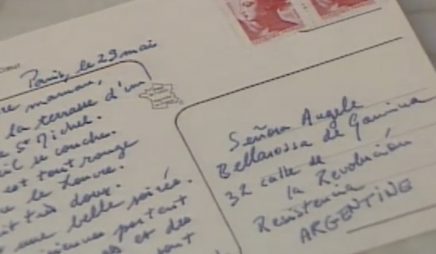 Paris, le 29 mai
maman,
la terrasse d'un
St Michel.
se couche.
est tout rouge
le Louvre.
doux.
une belle soirée.
partent
et des
Señora Angele
Bellarossa de
32 calle de
la Revolución
Resistencia
ARGENTINE